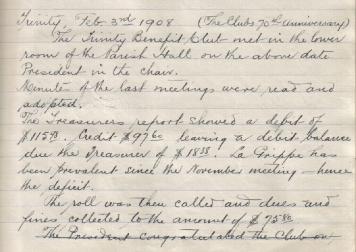 Trinity, Feb. 3rd 1908 (The Clubs 70th Anniversary)
The Trinity Benefit Club met in the lower
room of the Parish Hall on the above date
President in the chair.
Minutes of the last meetings were read and
adopted.
The Treasurers report showed a debit of
$115 Credit $97.60 leaving a debit balance
due the Treasurer of $18 La Grippe has
been prevalent since the November meeting - hence
the deficit.
The roll was then called and dues and
fines collected to the amount of $75.80
The President congratulated the Club on